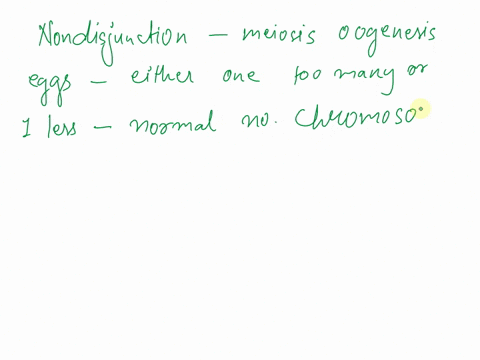 Nondisjunction - meiosis oogenesis
eggs - either one too many or
1 less - normal no. Chromoso